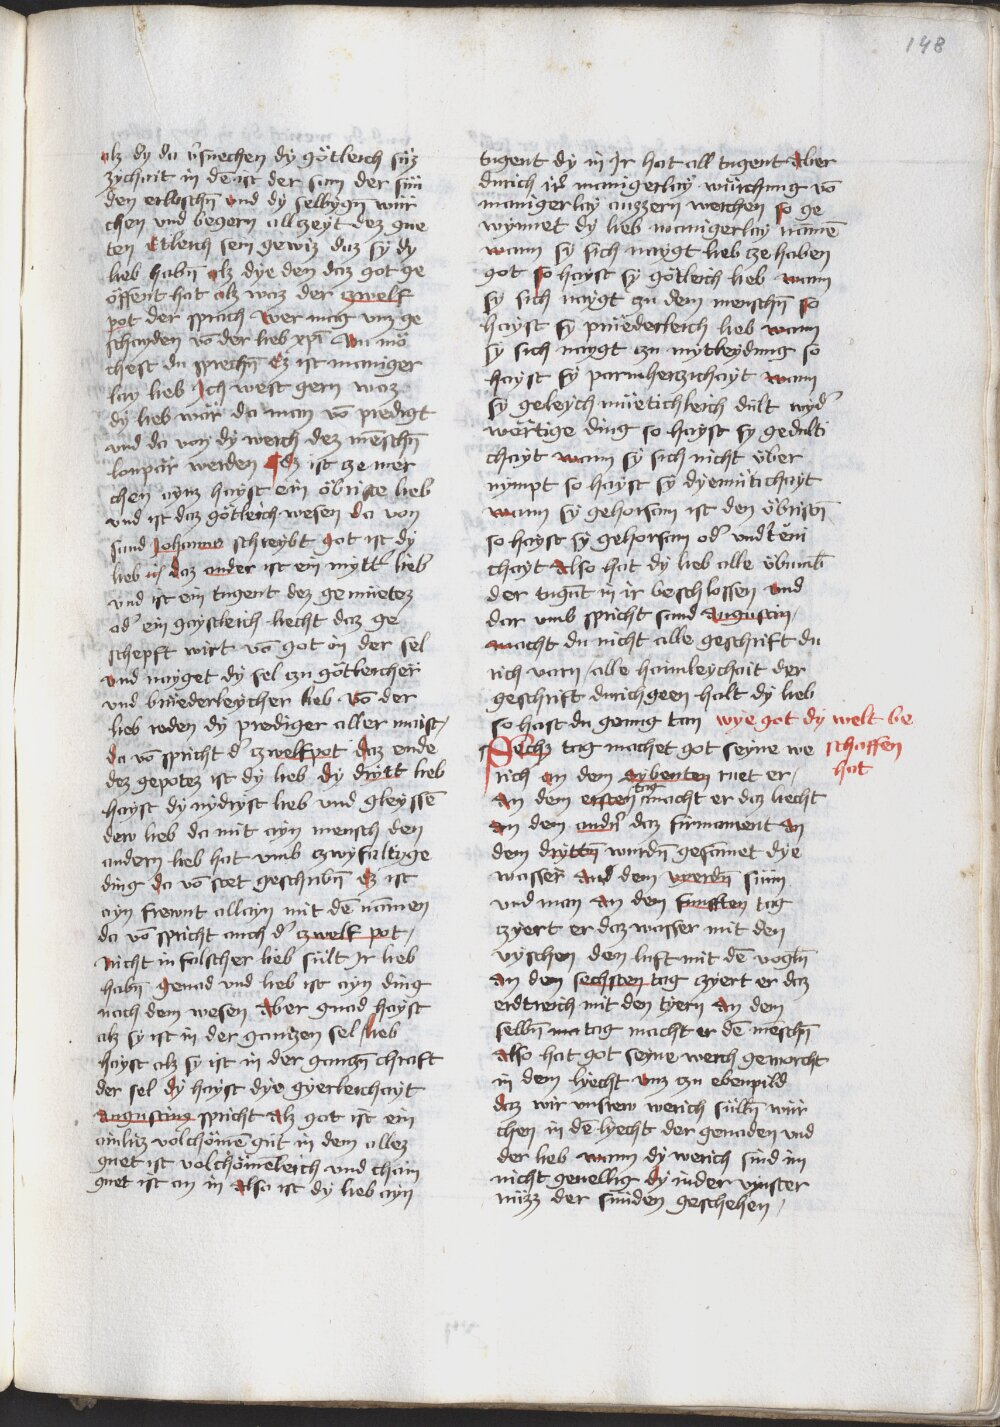 148
alz dy da v̈suechen dy götleich süz
zychait in den ist der sam der sün
den erlosch̄n vnd dy selbygn würi
chen vnd begern allczeyt dez gue
ten Etleich sein gewiz daz sy dy
lieb habn̄ alz dye den daz got ge
öffent hat alz waz der czwelf
pot der sprach Wer mag vnz ge
schayden vō der lieb xpī Nu mö
chest du sprechn̄ Ez ist maniger
lay lieb Ich west gern waz
dy lieb wär da man vō predigt
vnd da von dy werch dez mēschn̄
lonpär werden Ez ist cze mer
chen ayns hayst ein öbriste lieb
vnd ist daz götleich wesen da von
sand Johanns schreybt got ist dy
lieb daz ander ist ein mytt̓ lieb
vnd ist ein tugent dez gemüetez
od̓ ein gaystleich liecht daz ge
schepft wirt von got in der sel
vnd nayget dy sel zu götleicher
vnd brüederleycher lieb Vō der
lieb reden dy prediger aller maist /
da vō spricht d̓ czwelfpot daz ende
dez gepotez ist dy lieb dy drytt lieb
hayst dy nydryst lieb vnd gleyssē
dew lieb da mit ayn mensch den
andern lieb hat vmb czwyfaltyge
ding da vō stet geschribn̄ Ez ist
ayn frewnt allayn mit dē namen
da vō spricht auch d̓ czwelf pot /
Nicht in falscher lieb sült Ir lieb
habn̄ genad vnd lieb ist ayn ding
nach dem wesen Aber gnad hayst
alz sy ist in der ganczen sel / lieb
hayst alz sy ist in der ganczn̄ chraft
der sel dy hayst dye gyerleichayt
Augustins spricht Alz got ist ein
ainlitz volchömē gut in dem allez
guet ist volchömeleich vnd chain
guet ist an in Also ist dy lieb ayn
tugent dy in Ir hat all tugent Aber
durich ir̓ manigerlay würchung vō
manigerlay auzzern werchen so ge
wynnet dy lieb manigerlay namē
wann sy sich naygt lieb cze haben
got so hayst sy götleich lieb wann
sy sich naygt zu dem menschn̄ so
hayst sy prüederleich lieb wann
sy sich naygt zu mytleydung so
hayst sy parmherczichayt wann
sy geleych müetichleich dült wyd̓
wärtige ding so hayst sy gedulti
chayt wann sy sich nicht über
nympt so hayst sy dyemütichayt
wann sy gehorsam ist den öbristn̄
so hayst sy gehorsam od̓ vndtēni
chayt Also hat dy lieb alle
der tugnt in ir beschlossen vnd
dar vmb spricht sand Augustin /
macht du nicht alle geschrift du
rich varn / alle haimleychait der
geschrift durichgeen halt dy lieb
so hast du genug tan wye got dy welt be
schaffen
hat
Sechz tag machet got seyne we
rich an dem sybenten ruet er /
An dem ersten tag macht er daz liecht
An dem andn̄ daz firmament An
dem drytten wurdn̄ gesāmet dye
wasser And dem vyerdn̄ sunn
vnd man An den funften tag
czyert er daz wasser mit den
vyschen den luft mit dē vogln̄
An dem sechsten tag czyert er daz
erdtreich mit den tyern An dem
selbn̄ ma tag macht er dē mēschn̄
Also hat got seyne werch geworcht
in dem lyecht vnz zu ebenpild
daz wir vnsrew werich sülln̄ wür
chen in dē lyecht der genaden vnd
der lieb wann dy werich sind im
nicht geuellig dy inder vinster
nüzz der sünden geschehen /